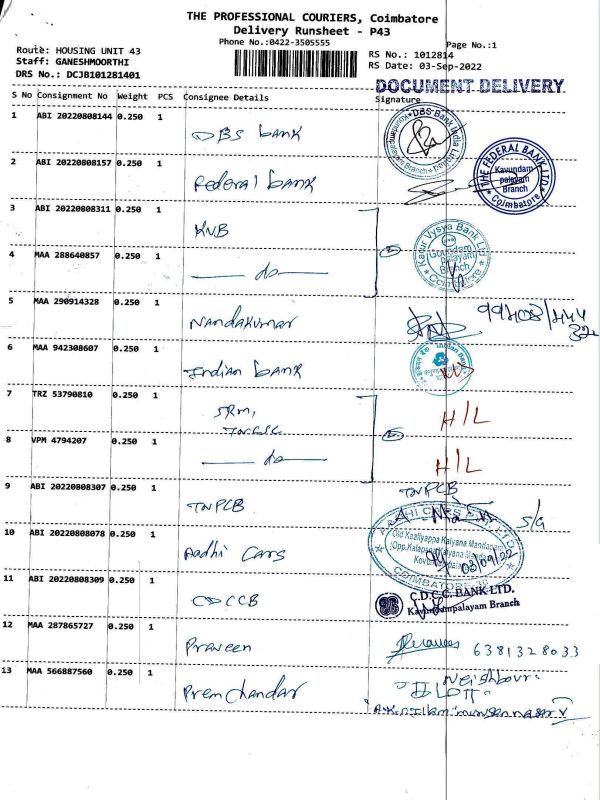 THE PROFESSIONAL COURIERS, Coimbatore
Delivery Runsheet - P43
Phone No.:0422-3505555
Page No.:1
Route: HOUSING UNIT 43
Staff: GANESHMOORTHI
DRS No.: DCJB101281401
RS No.: 1012814
RS Date: 03-Sep-2022
DOCUMENT DELIVERY
S No Consignment No Weight PCS Consignee Details Signature
1 ABI 20220808144 0.250 1 DBS bank
DBS Bank India Limited
2 ABI 20220808157 0.250 1 Federal bank
THE FEDERAL BANK LTD
Kavundam
palayam
Branch
Coimbatore
3 ABI 20220808311 0.250 1 KVB
Karur Vysya Bank Ltd
Goundam
Palayam
Branch
Coimbatore
4 MAA 288640857 0.250 1 do
5 MAA 290914328 0.250 1 Nandakumar
6 MAA 942308607 0.250 1 Indian bank
Indian Bank
7 TRZ 53790810 0.250 1 SRM, H/L
8 VPM 4794207 0.250 1 do H/L
9 ABI 20220808307 0.250 1 TNPCB TNPCB
S/G
10 ABI 20220808078 0.250 1 Aadhi Cars
AADHI CARS
Old Kaaliyappa Kalyana Mandapam
COIMBATORE
03/09/22
11 ABI 20220808309 0.250 1 CDCCB
C.D.C.C. BANK LTD.
Kavundampalayam Branch
12 MAA 287865727 0.250 1 Praveen 6381328033
13 MAA 566887560 0.250 1 Prem Chandar
Neighbour